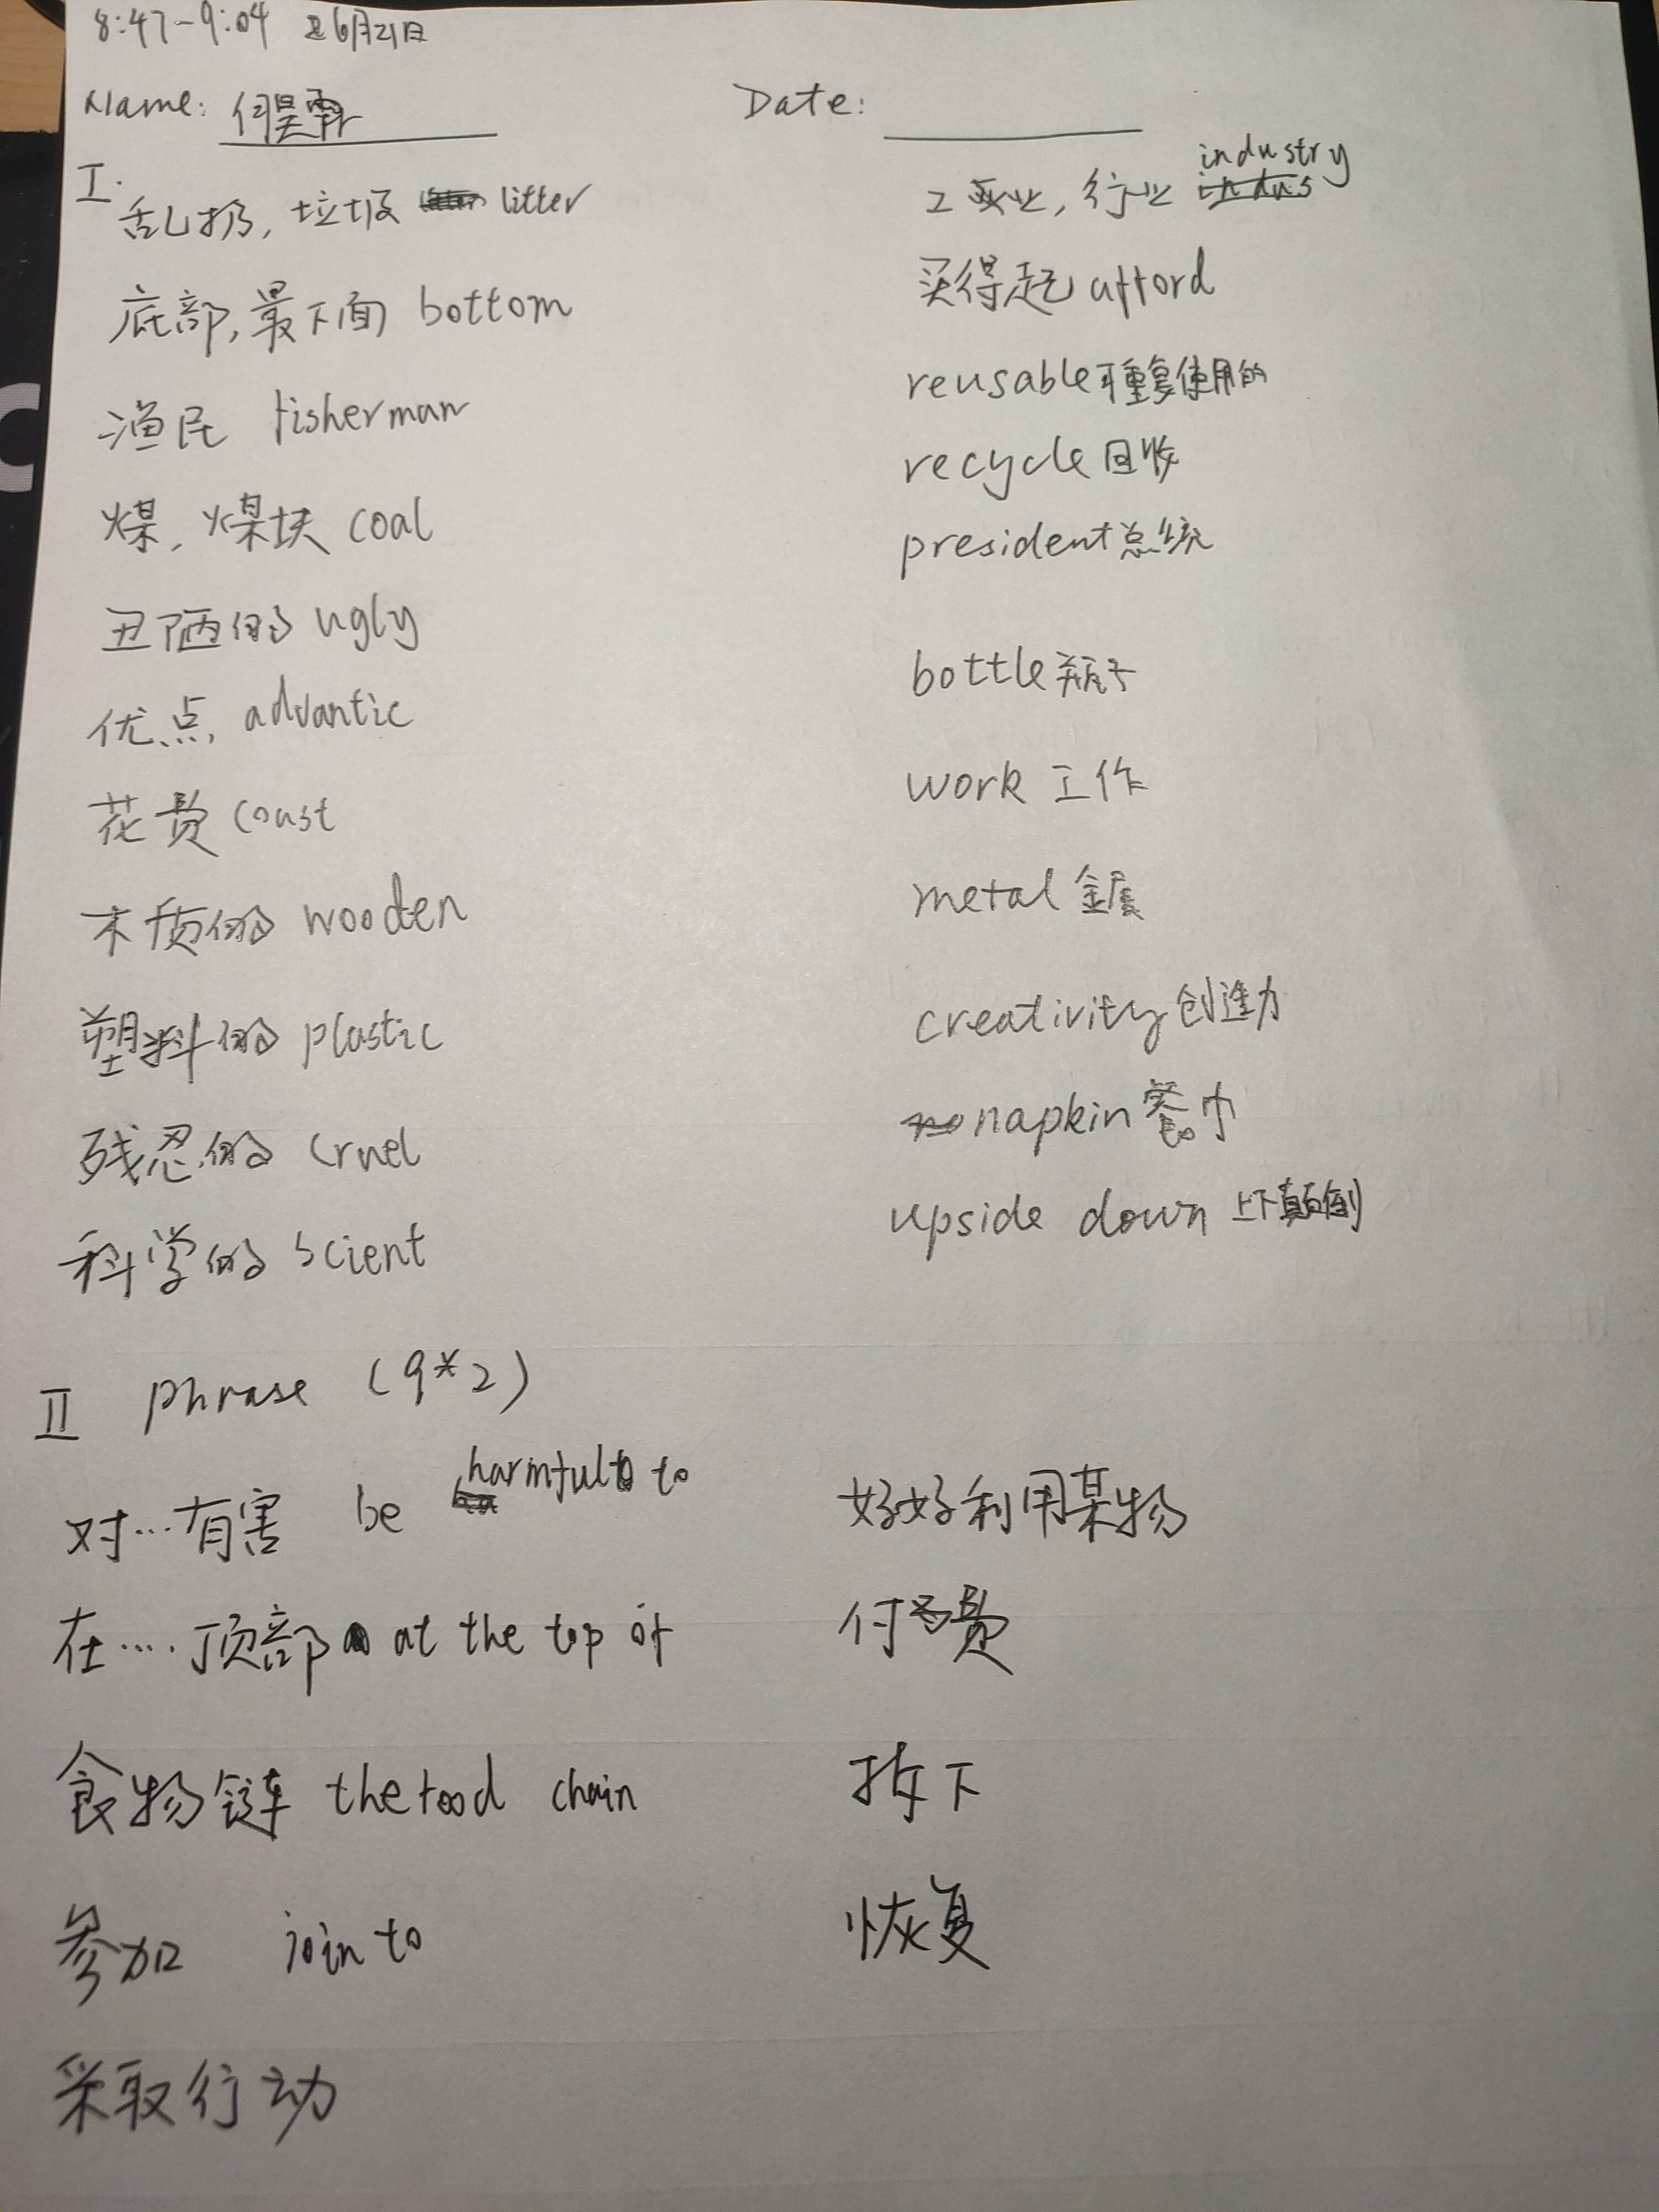 8:47-9:04 6月21日
Name: 何昊霖
Date:
I.
乱扔, 垃圾 litter
底部, 最下面 bottom
渔民 fisherman
煤, 煤块 coal
丑陋的 ugly
优点, advantic
花费 coast
木质的 wooden
塑料的 plastic
残忍的 cruel
科学的 scient
工业, 行业 industry
买得起 afford
reusable 可重复使用的
recycle 回收
president 总统
bottle 瓶子
work 工作
metal 金属
creativity 创造力
napkin 餐巾
upside down 上下颠倒
II phrase (9*2)
对…有害 be harmful to
在…. 顶部 at the top of
食物链 the food chain
参加 join to
采取行动
好好利用某物
付费
拆下
恢复